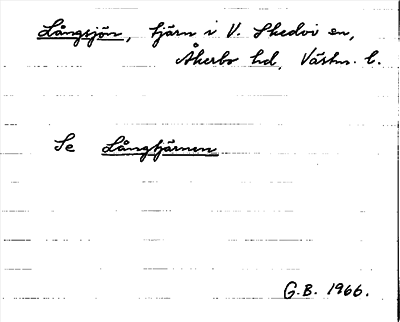 Långsjön, tjärn i V. Skedvi sn,
Åkerbo hd, Västm. l.
Se Långtjärnen
G.B. 1966.